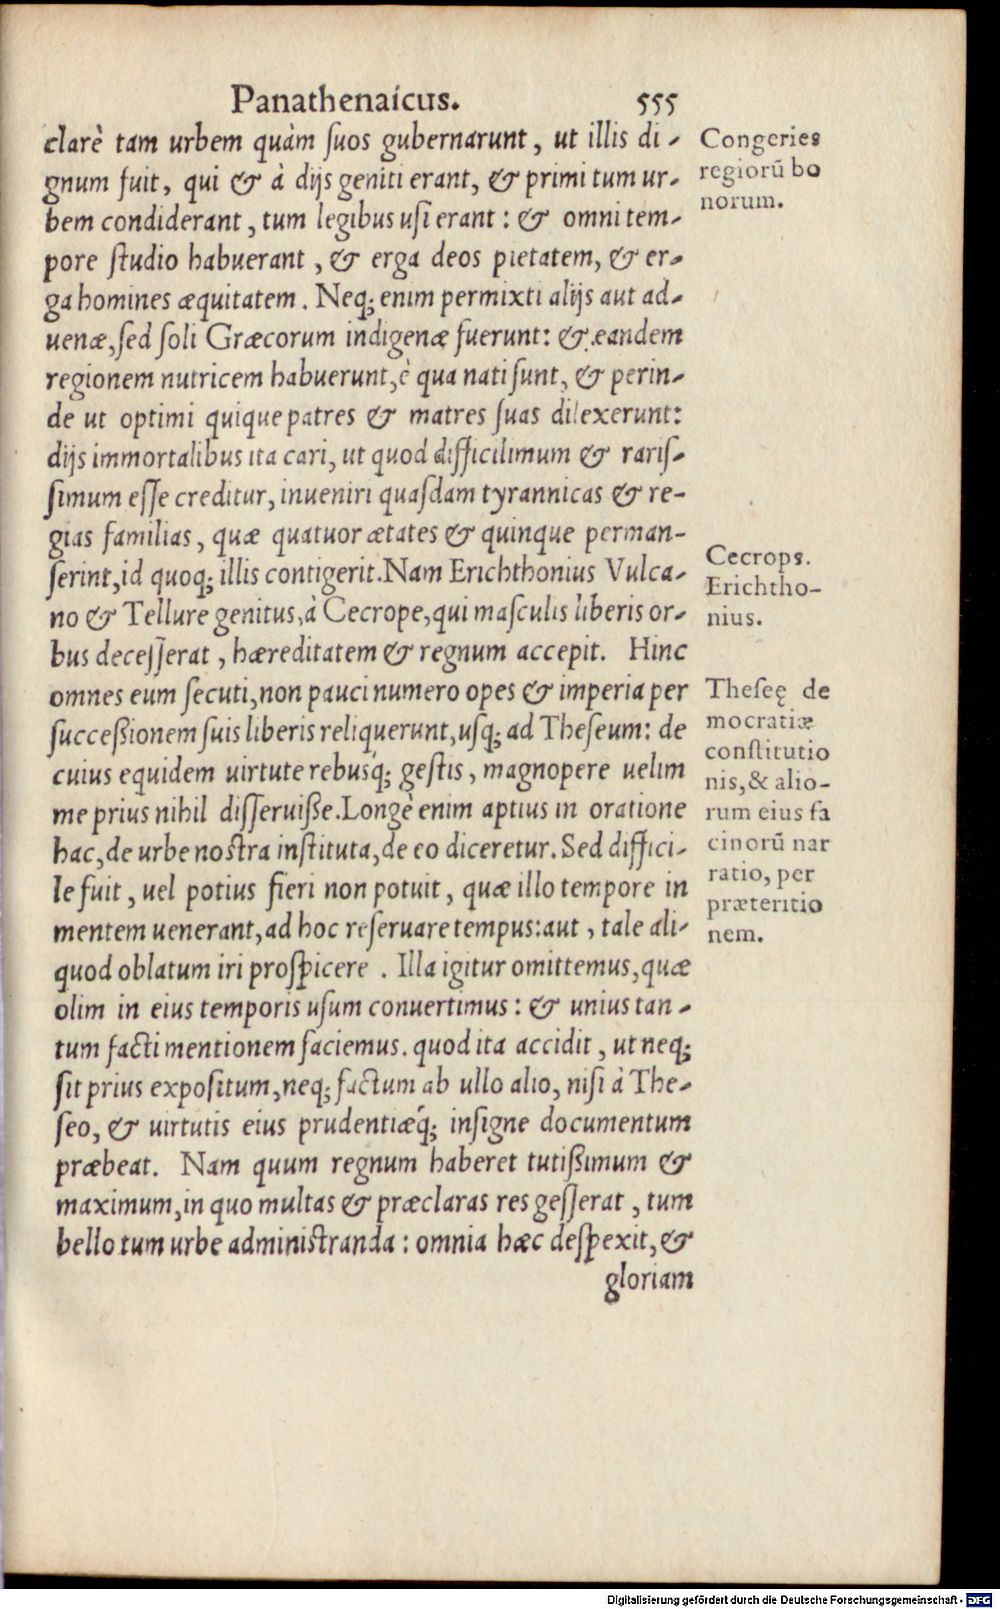 Panathenaicus. 555
clarè tam urbem quàm suos gubernarunt, ut illis di-
gnum fuit, qui & à dijs geniti erant, & primi tum ur-
bem condiderant, tum legibus usi erant: & omni tem-
pore studio habuerant, & erga deos pietatem, & er-
ga homines æquitatem. Neq; enim permixti alijs aut ad-
uenæ, sed soli Græcorum indigenæ fuerunt: & eandem
regionem nutricem habuerunt, è qua nati sunt, & perin-
de ut optimi quique patres & matres suas dilexerunt:
dijs immortalibus ita cari, ut quod difficilimum & raris-
simum esse creditur, inueniri quasdam tyrannicas & re-
gias familias, quæ quatuor ætates & quinque perman-
serint, id quoq; illis contigerit. Nam Erichthonius Vulca-
no & Tellure genitus, à Cecrope, qui masculis liberis or-
bus decesserat, hæreditatem & regnum accepit. Hinc
omnes eum secuti, non pauci numero opes & imperia per
succeßionem suis liberis reliquerunt, usq; ad Theseum: de
cuius equidem uirtute rebusq́; gestis, magnopere uelim
me prius nihil disseruiße. Longè enim aptius in oratione
hac, de urbe nostra instituta, de eo diceretur. Sed diffici-
le fuit, uel potius fieri non potuit, quæ illo tempore in
mentem uenerant, ad hoc reseruare tempus: aut, tale ali-
quod oblatum iri prospicere. Illa igitur omittemus, quæ
olim in eius temporis usum conuertimus: & unius tan-
tum facti mentionem faciemus. quod ita accidit, ut neq;
sit prius expositum, neq; factum ab ullo alio, nisi à The-
seo, & uirtutis eius prudentiæq́; insigne documentum
præbeat. Nam quum regnum haberet tutißimum &
maximum, in quo multas & præclaras res gesserat, tum
bello tum urbe administranda: omnia hæc despexit, &
gloriam
Congeries
regiorũ bo
norum.
Cecrops.
Erichtho-
nius.
Theseę de
mocratiæ
constitutio
nis, & alio-
rum eius fa
cinorũ nar
ratio, per
præteritio
nem.
Digitalisierung gefördert durch die Deutsche Forschungsgemeinschaft - DFG